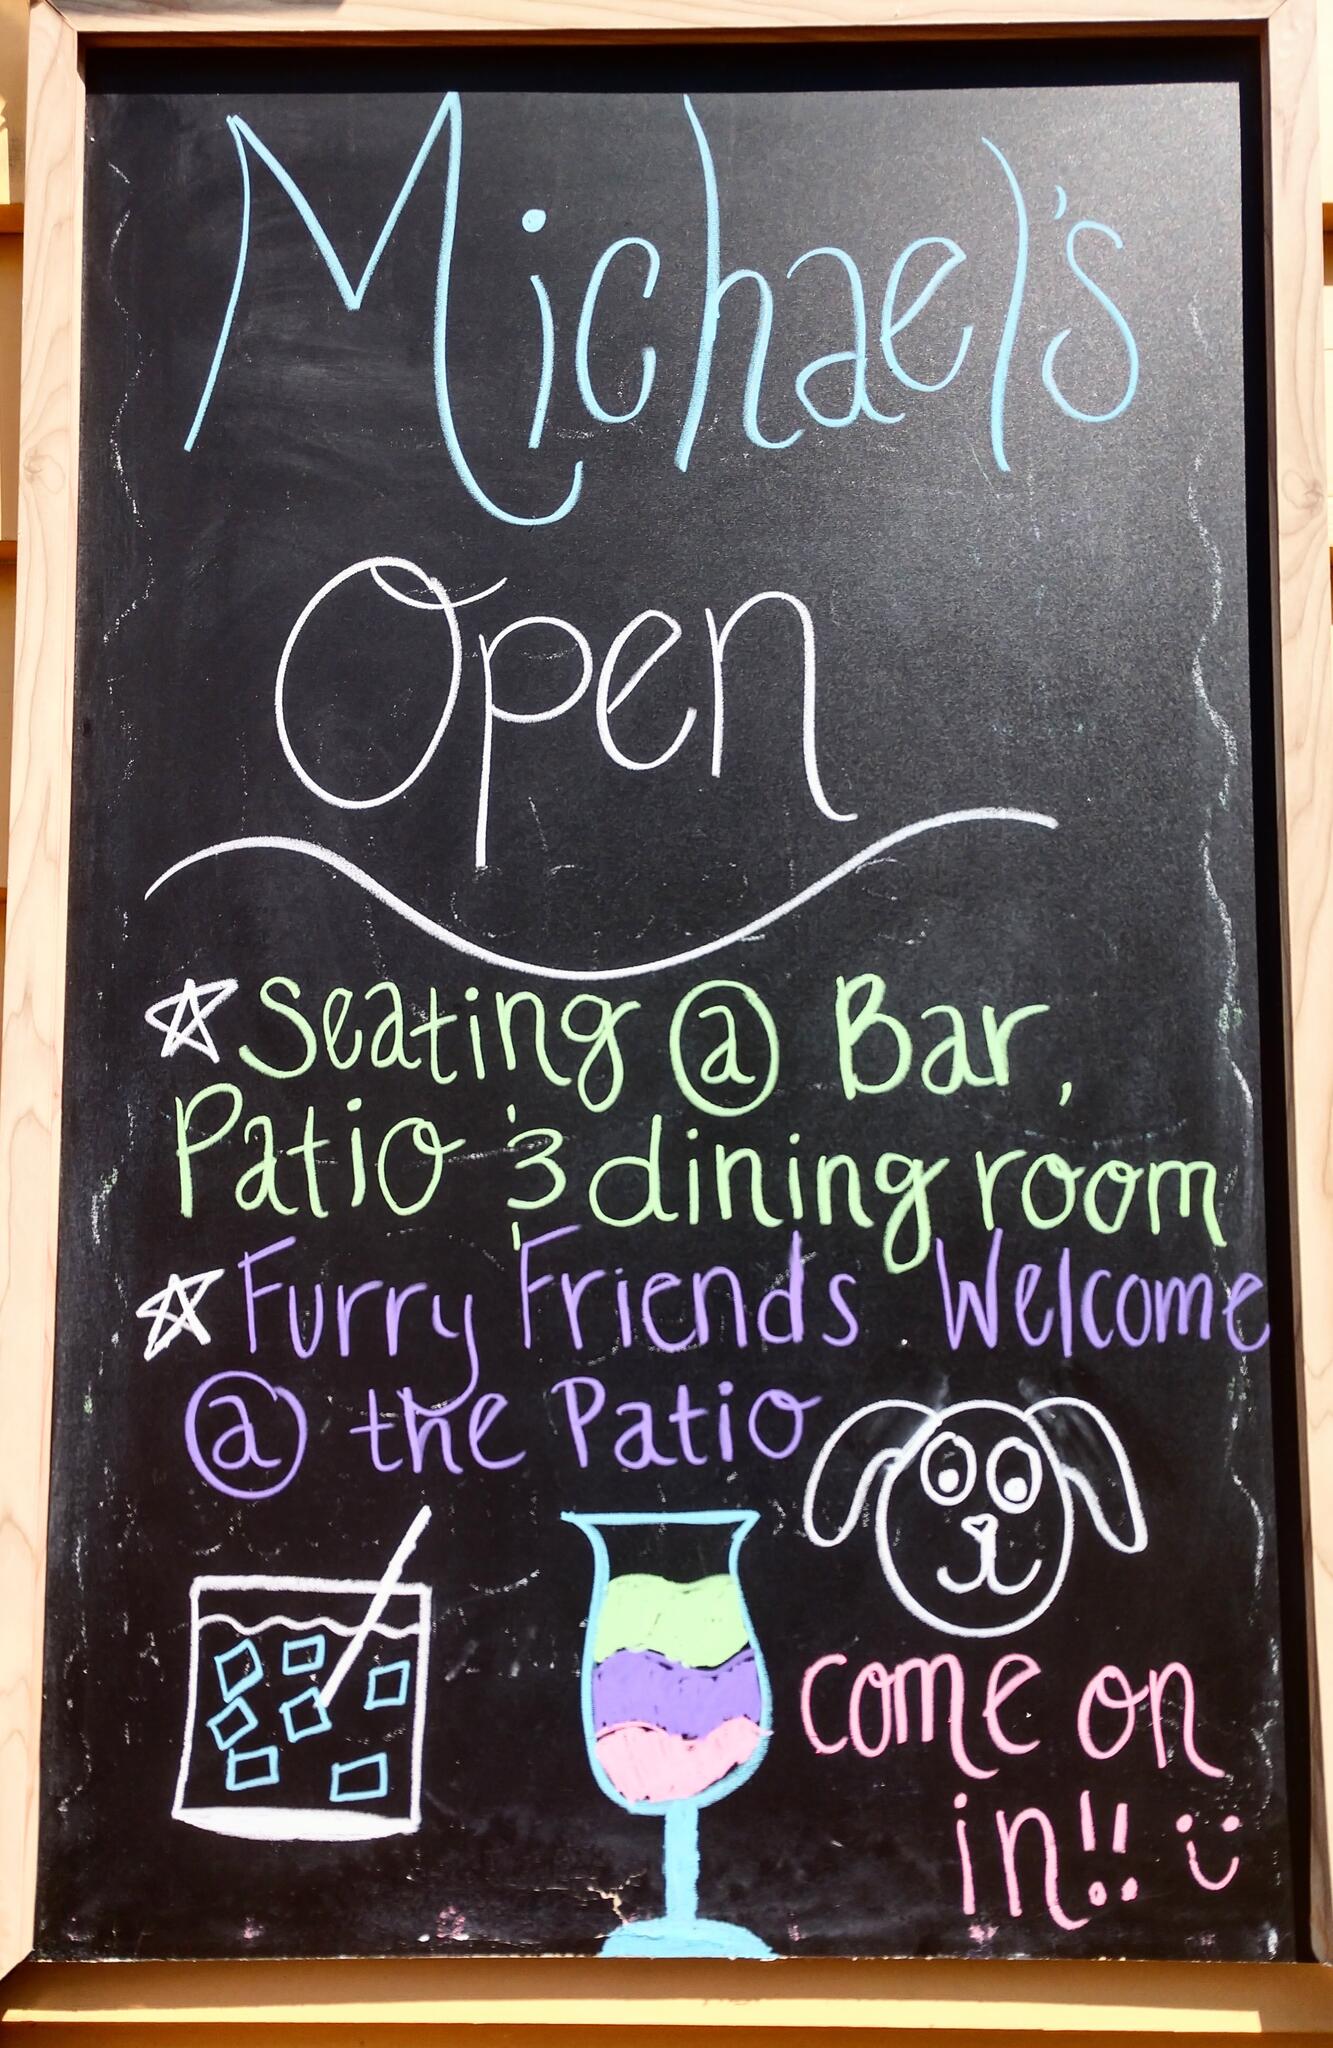 Michael's
Open
☆ Seating @ Bar,
Patio & dining room
☆ Furry Friends Welcome
@ the Patio
come on
in!! :)